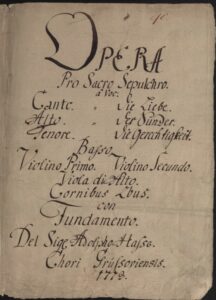 OPERA
Pro Sacro Sepulchro.
a Voc:
Canto. " Die Liebe.
Alto. " Der Sünder.
Tenore. " Die Gerechtigkeit.
Basso
Violino Primo. Violino Secundo.
Viola di Alto.
Cornibus 2bus.
con
Fundamento.
Del Sige Adolpho Hasse.
Chori Grüssoriensis.